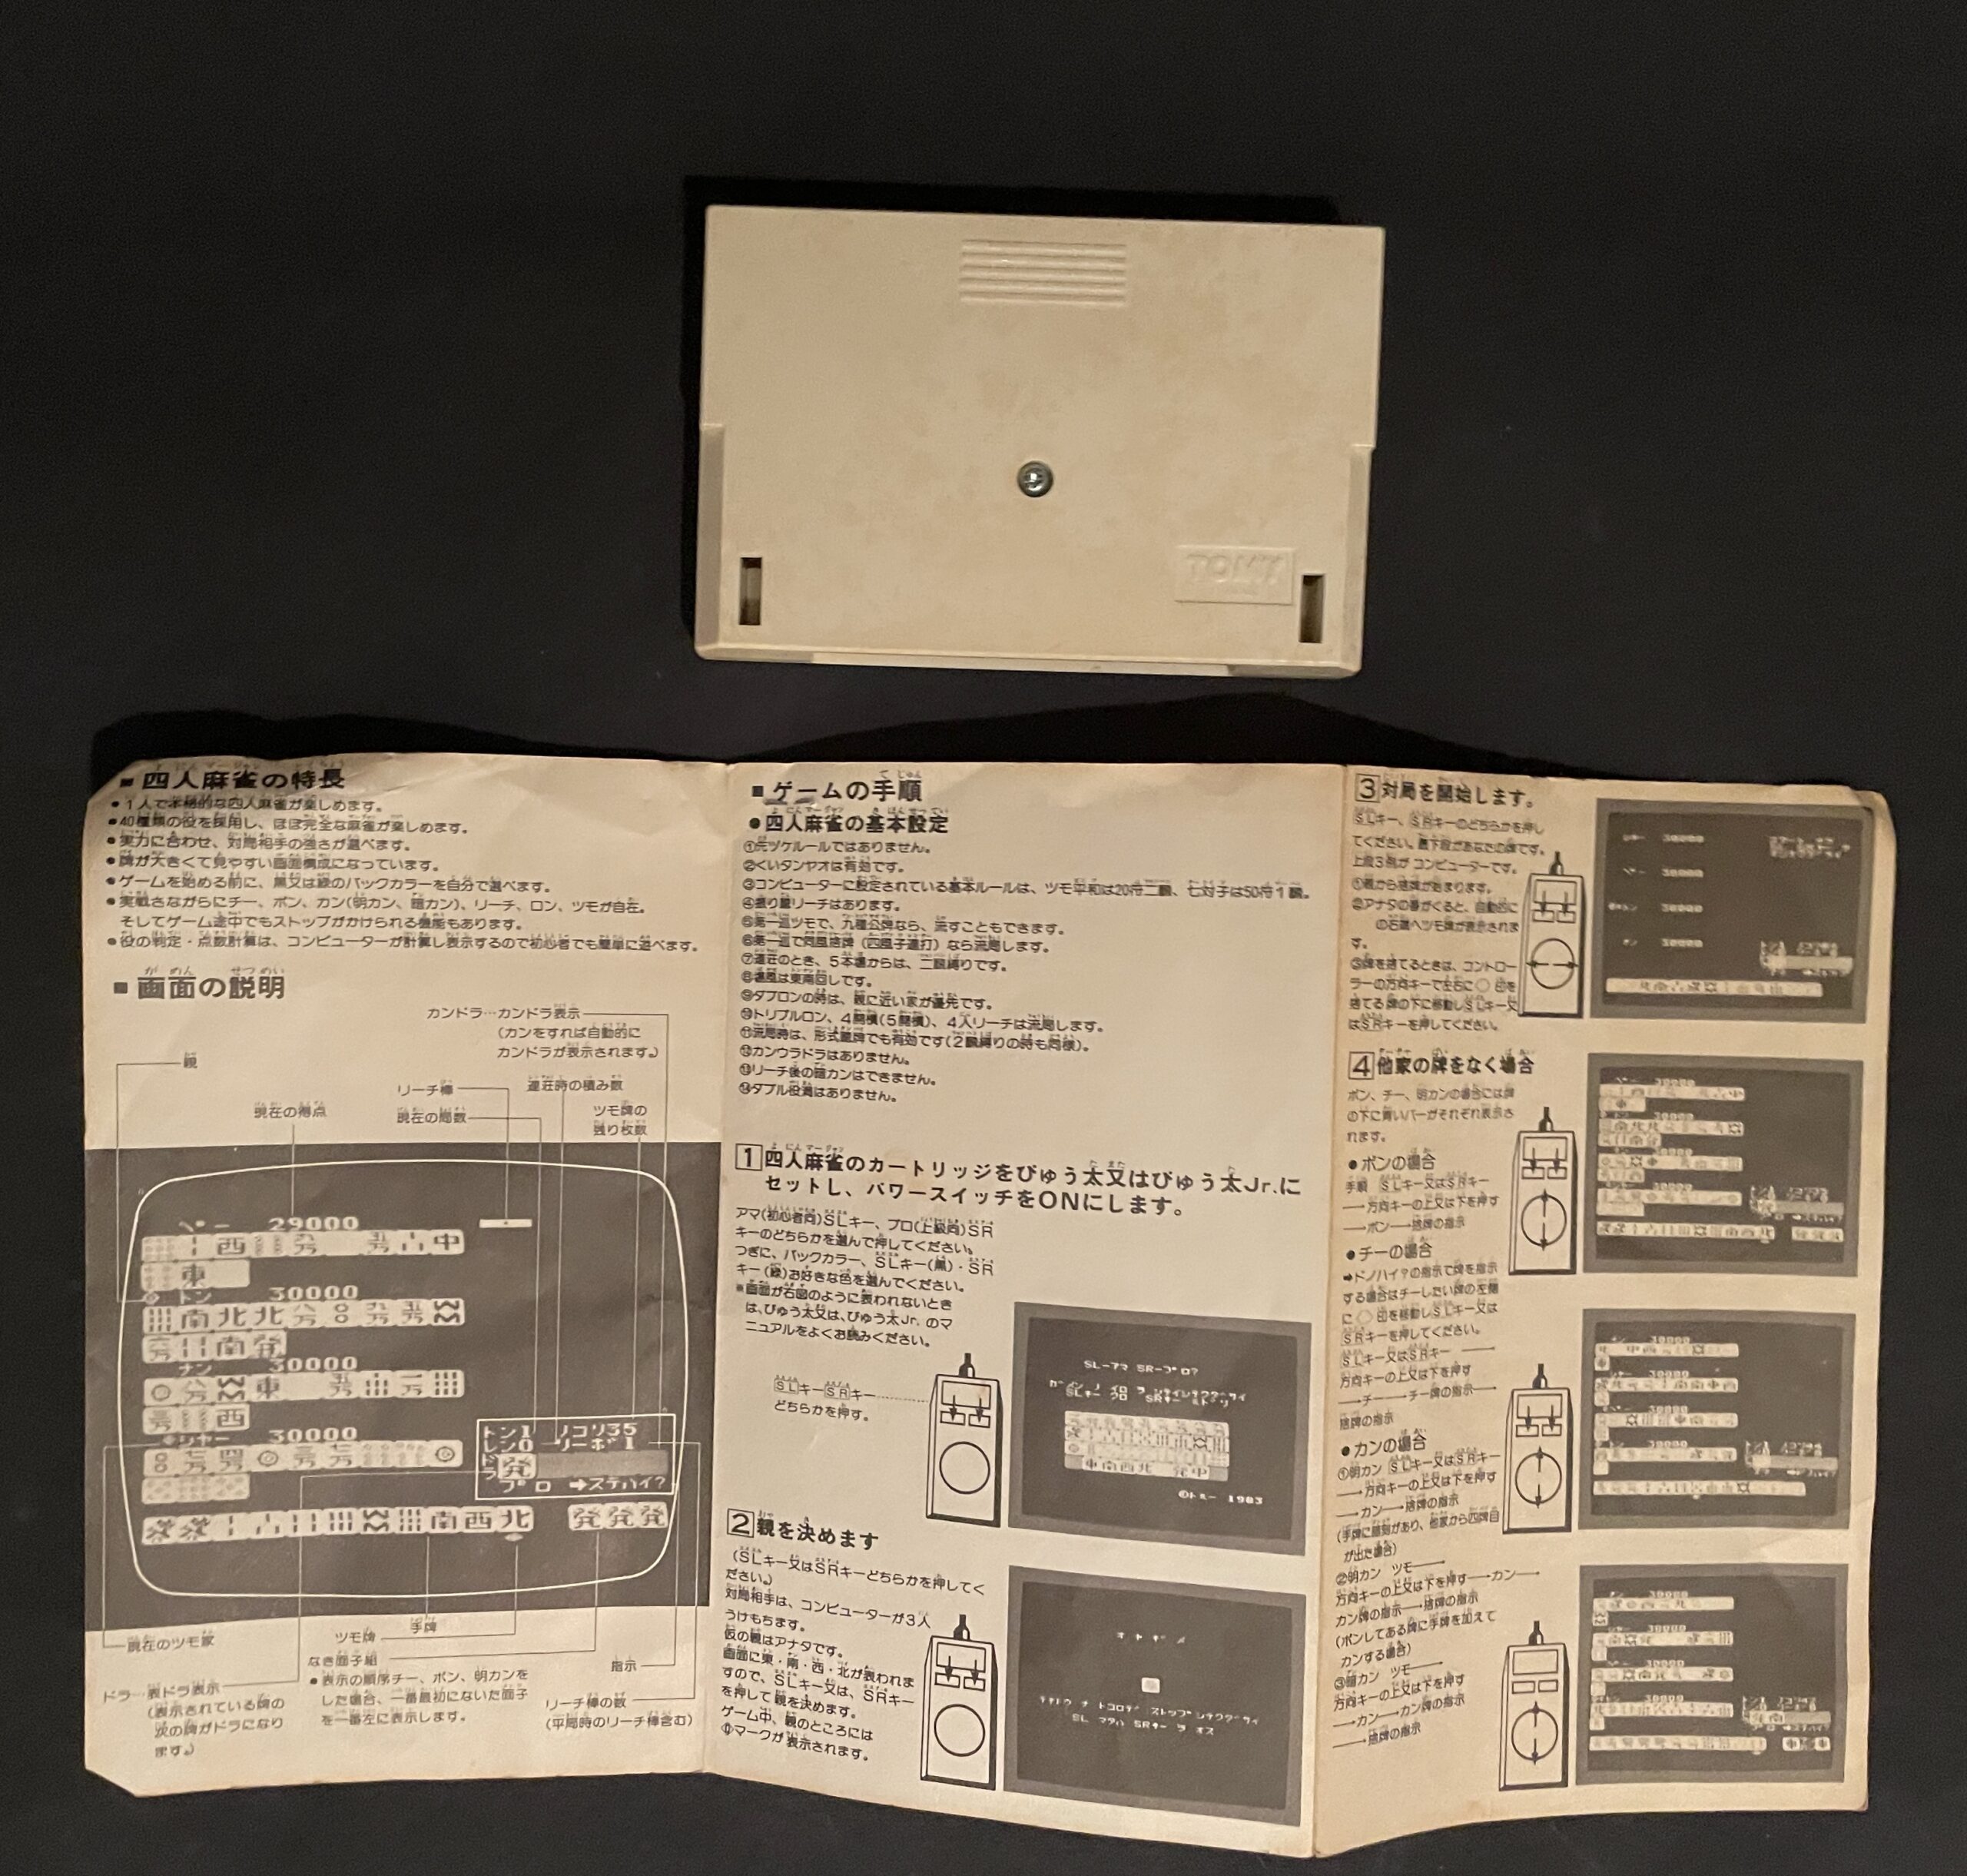 TOMY
■四人麻雀の特長
●1人で本格的な四人麻雀が楽しめます。
●40種類の役を採用し、ほぼ完全な麻雀が楽しめます。
●実力に合わせ、対局相手の強さが選べます。
●牌が大きくて見やすい画面構成になっています。
●ゲームを始める前に、黒又は緑のバックカラーを自分で選べます。
●実戦さながらにチー、ポン、カン(明カン、暗カン)、リーチ、ロン、ツモが自在。
そしてゲーム途中でもストップがかけられる機能もあります。
●役の判定・点数計算は、コンピューターが計算し表示するので初心者でも簡単に遊べます。
■画面の説明
カンドラ…カンドラ表示
(カンをすれば自動的に
カンドラが表示されます。)
親
リーチ棒
連荘時の積み数
現在の得点
現在の局数
ツモ牌の
残り枚数
ペー 29000
西 中
東
トン 30000
南北北
南発
ナン 30000
東
西
シャー 30000
トン1 ノコリ35
レン0 リーボ1
ドラ 発
プロ ➡ステハイ?
南西北 発発発
現在のツモ家
手牌
ツモ牌
なき面子組
指示
●表示の順序チー、ポン、明カンを
した場合、一番最初にないた面子
を一番左に表示します。
ドラ…表ドラ表示
(表示されている牌の
次の牌がドラになり
ます。)
リーチ棒の数
(平局時のリーチ棒含む)
■ゲームの手順
●四人麻雀の基本設定
①完ヅケルールではありません。
②くいタンヤオは有効です。
③コンピューターに設定されている基本ルールは、ツモ平和は20符二飜、七対子は50符1飜。
④振り聴リーチはあります。
⑤第一巡ツモで、九種公牌なら、流すこともできます。
⑥第一巡で同風捨牌(四風子連打)なら流局します。
⑦連荘のとき、5本場からは、二飜縛りです。
⑧場風は東南回しです。
⑨ダブロンの時は、親に近い家が優先です。
⑩トリプルロン、4開槓(5開槓)、4人リーチは流局します。
⑪流局時は、形式聴牌でも有効です(2飜縛りの時も同様)。
⑫カンウラドラはありません。
⑬リーチ後の暗カンはできません。
⑭ダブル役満はありません。
1 四人麻雀のカートリッジをぴゅう太又はぴゅう太Jr.に
セットし、パワースイッチをONにします。
アマ(初心者向)SLキー、プロ(上級向)SR
キーのどちらかを選んで押してください。
つぎに、バックカラー、SLキー(黒)・SR
キー(緑)お好きな色を選んでください。
※画面が右図のように表われないとき
は、ぴゅう太又は、ぴゅう太Jr. のマ
ニュアルをよくお読みください。
SLキーSRキー
どちらかを押す。
SL-アマ SR-プロ?
ガメン ノ イロ ヲ センタイシテクダサイ
SLキー クロ SRキー ミドリ
東南西北 発中
©トミー 1983
2 親を決めます
(SLキー又はSRキーどちらかを押してく
ださい。)
対局相手は、コンピューターが3人
うけもちます。
仮の親はアナタです。
画面に東・南・西・北が表われま
すので、SLキー又は、SRキー
を押して親を決めます。
ゲーム中、親のところには
マークが表示されます。
オヤギメ
テキトウ ナ トコロデ ストップ シテクダサイ
SL マタハ SRキー ヲ オス
3 対局を開始します。
SLキー、SRキーのどちらかを押し
てください。最下段があなたの牌です。
上段3列が コンピューターです。
①親から捨牌が始まります。
②アナタの番がくると、自動的に
の右端へツモ牌が表示されま
す。
③牌を捨てるときは、コントロー
ラーの方向キーで左右に◯印を
捨てる牌の下に移動しSLキー又
はSRキーを押してください。
シャー 30000
ペー 30000
30000
ナン 30000
4 他家の牌をなく場合
ポン、チー、明カンの場合には牌
の下に青いバーがそれぞれ表示さ
れます。
●ポンの場合
手順 SLキー又はSRキー
→方向キーの上又は下を押す
→ポン→捨牌の指示
●チーの場合
➡ドノハイ?の指示で牌を指示
する場合はチーしたい牌の左側
に◯印を移動しSLキー又は
SRキーを押してください。
SLキー又はSRキー→
方向キーの上又は下を押す
→チー→チー牌の指示→
捨牌の指示
●カンの場合
①明カン SLキー又はSRキー
→方向キーの上又は下を押す
→カン→捨牌の指示
(手牌に暗刻があり、他家から四牌目
が出た場合)
②明カン ツモ→
方向キーの上又は下を押す→カン→
カン牌の指示→捨牌の指示
(ポンしてある牌に手牌を加えて
カンする場合)
③暗カン ツモ→
方向キーの上又は下を押す
→カン→カン牌の指示
→捨牌の指示